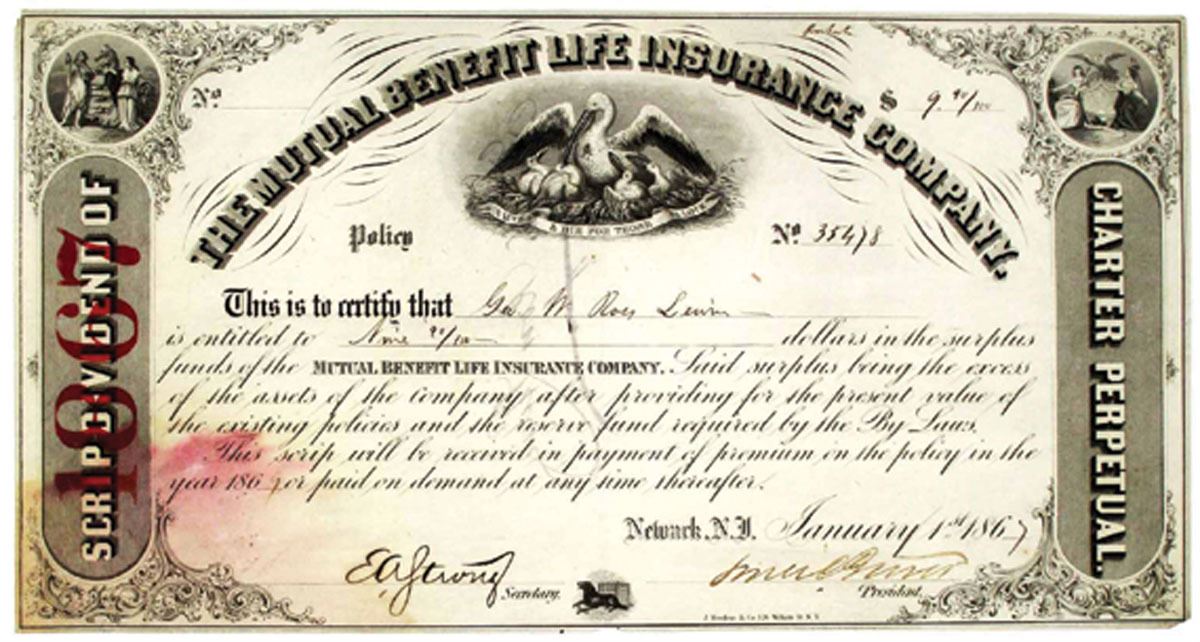 THE MUTUAL BENEFIT LIFE INSURANCE COMPANY.
No
$ 9 90/100
& DIE FOR THOSE
Policy
No 35478
This is to certify that Geo W Ross Lewin
is entitled to Nine 90/100 dollars in the surplus
funds of the MUTUAL BENEFIT LIFE INSURANCE COMPANY. Said surplus being the excess
of the assets of the company after providing for the present value of
the existing policies and the reserve fund required by the By Laws.
This scrip will be received in payment of premium on the policy in the
year 186 or paid on demand at any time thereafter.
Newark, N.J. January 1st 1867
EA Strong Secretary.
President.
SCRIP DIVIDEND OF
1867
CHARTER PERPETUAL.